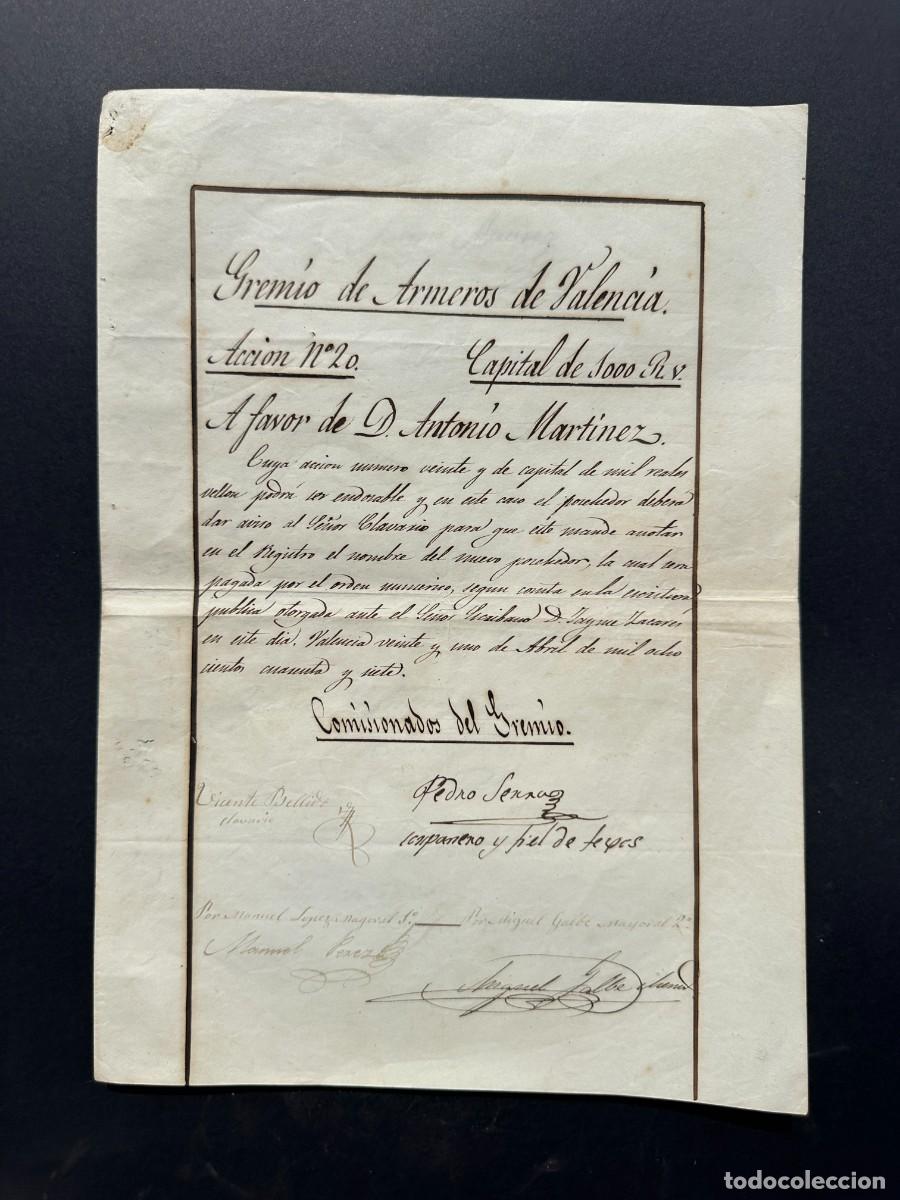 Gremio de Armeros de Valencia.
Accion Nº 20. Capital de 1000 R. v.
A favor de D. Antonio Martinez.
Cuya accion numero veinte y de capital de mil reales
vellon podrá ser endosable y en este caso el posehedor deberá
dar aviso al Señor Clavario para que este mande anotar
en el Registro el nombre del nuevo posehedor, la cual sera
pagada por el orden numerico, segun consta en la escritura
publica otorgada ante el Señor Escribano D. Jayme Zacares
en este dia. Valencia veinte y uno de Abril de mil ocho
cientos cuarenta y siete.
Comisionados del Gremio.
Vicente Bellido
clavario
Pedro Serra
y fiel de fechos
Por Manuel Lopez Mayoral 1º
Por Miguel Galbe Mayoral 2º
Manuel Perez
Miguel Galbe menor
todocoleccion